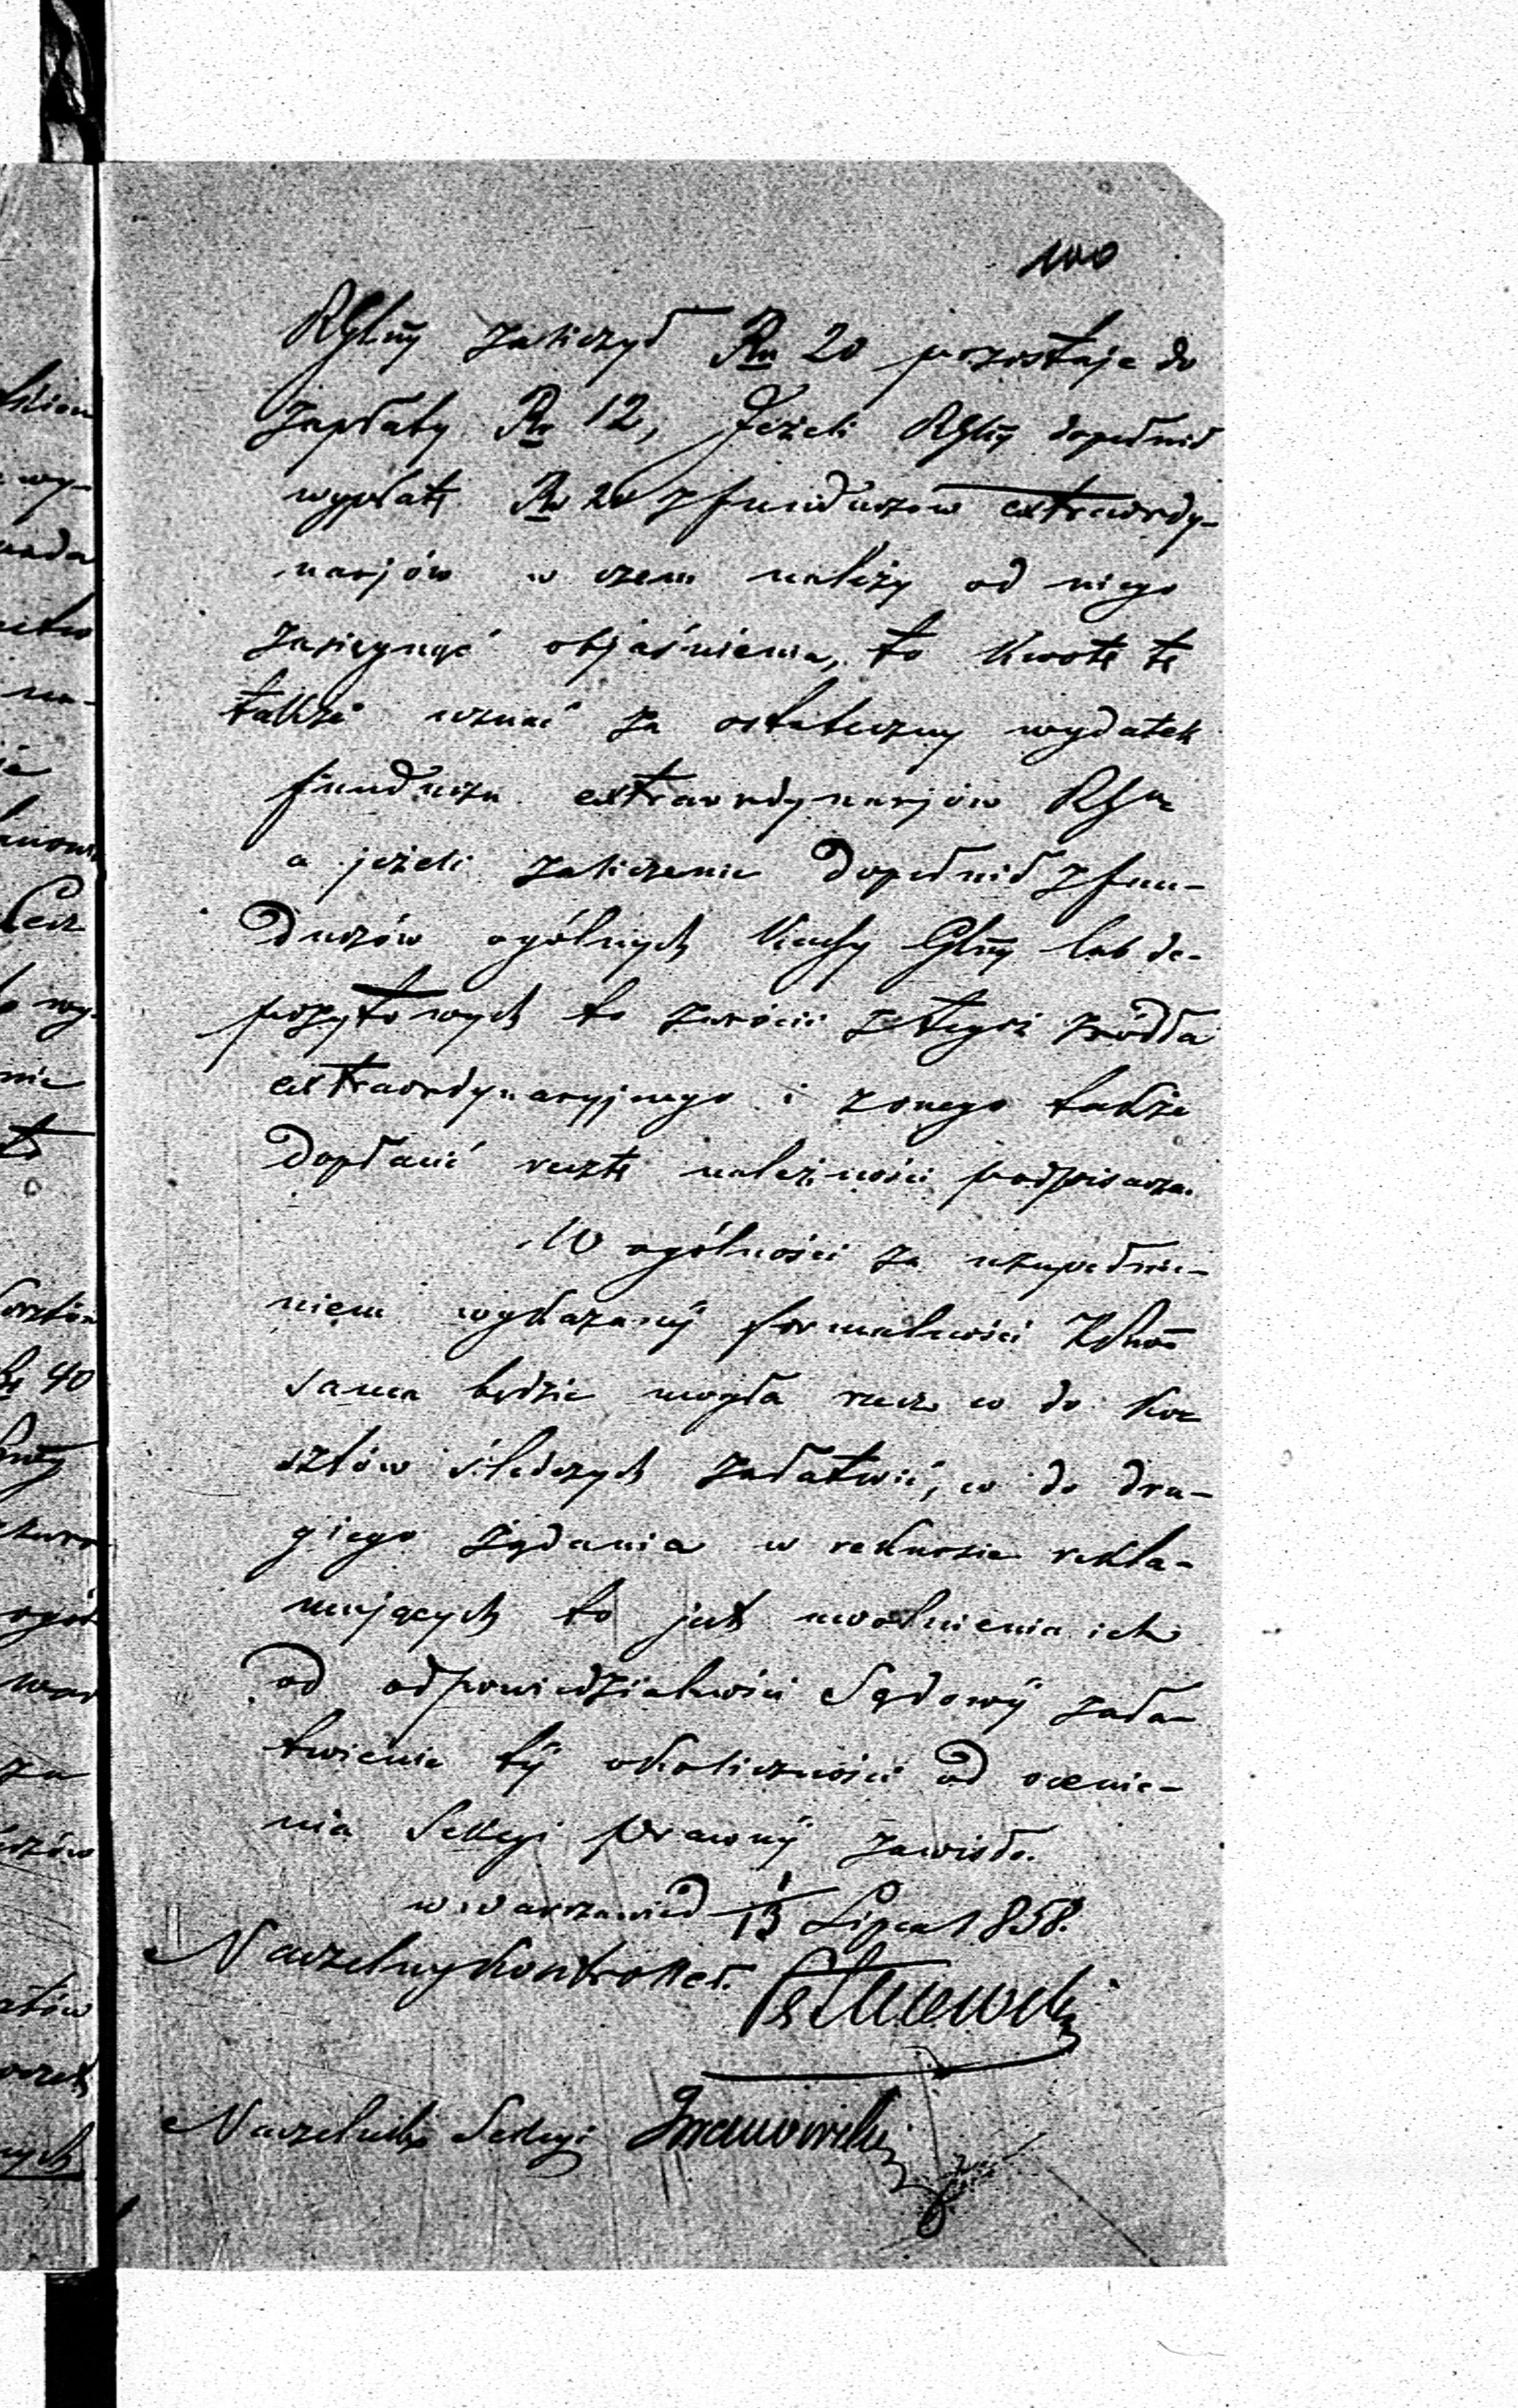 100
RGlny zaliczył Rs 20 pozostaje do
zapłaty Rs 12, Jeżeli RGlny dopełnił
wypłatę Rs 20 z funduszów extraordy-
narjów w czem należy od niego
zasięgnąć objaśnienia, to kwotę tę
także uznać za ostateczny wydatek
funduszu extraordynarjów
a jeżeli zaliczenie dopełnił z fun-
duszów ogólnych Kassy Glnej lub de-
pozytowych to zwrócić z tegoż źródła
extraordynaryjnego i z onego także
dopłacić resztę należności podpisarza.
W ogólności za uzupełnie-
niem wykazanej formalności
sama będzie mogła rzecz co do Ko-
sztów śledczych załatwić, co do dru-
giego żądania w rekursie rekla-
mujących to jest uwolnienia ich
od odpowiedzialności Sądowej zała-
twienie tej okoliczności od ocenie-
nia Sekcyi Prawnej zawisło.
w Warszawie d 1/13 Lipca 1858.
Naczelny Kontroller
Naczelnik Sekcyi